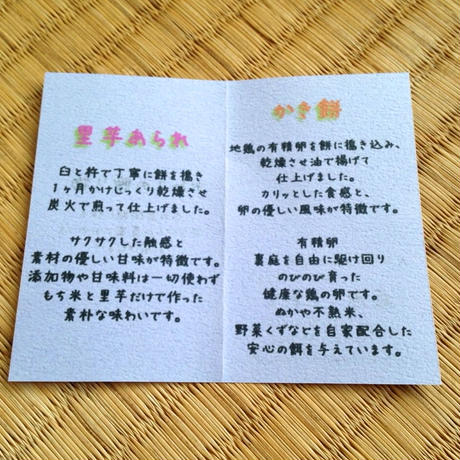 里芋あられ
臼と杵で丁寧に餅を搗き
1ヶ月かけじっくり乾燥させ
炭火で煎って仕上げました。
サクサクした触感と
素材の優しい甘味が特徴です。
添加物や甘味料は一切使わず
もち米と里芋だけで作った
素朴な味わいです。
かき餅
地鶏の有精卵を餅に搗き込み、
乾燥させ油で揚げて
仕上げました。
カリッとした食感と、
卵の優しい風味が特徴です。
有精卵
裏庭を自由に駆け回り
のびのび育った
健康な鶏の卵です。
ぬかや不熟米、
野菜くずなどを自家配合した
安心の餌を与えています。